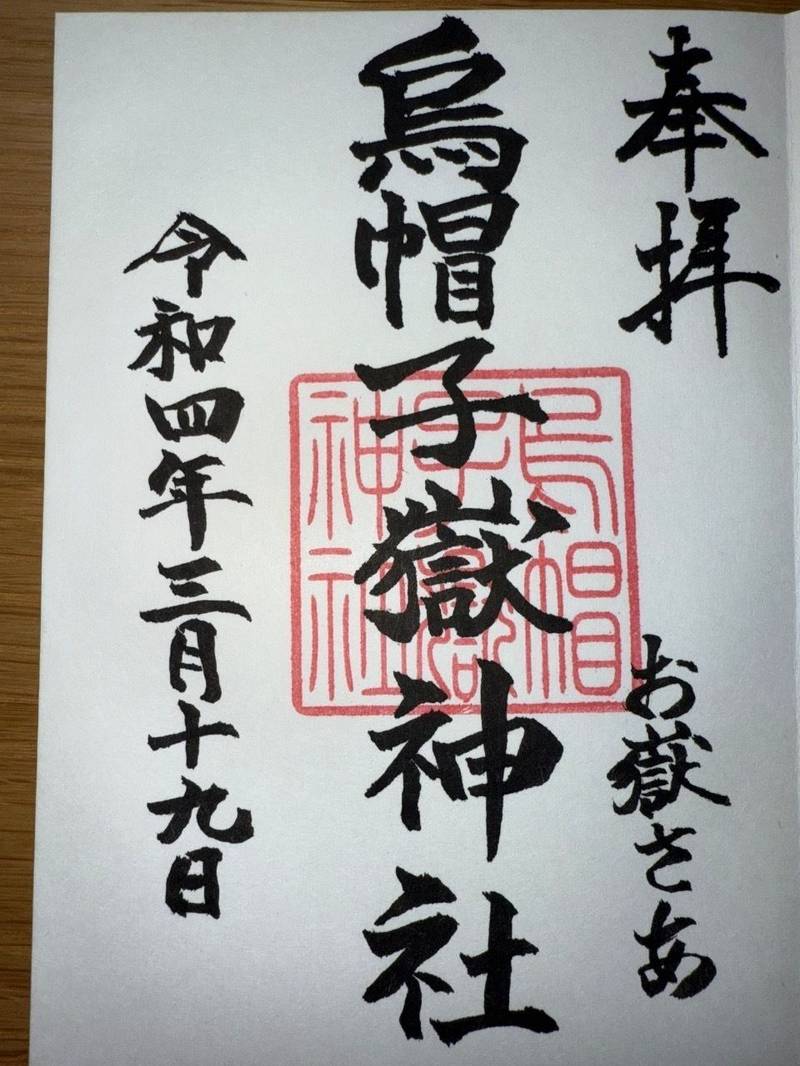 奉拝
お嶽さあ
烏帽子嶽神社
烏帽
子嶽
神社
令和四年三月十九日